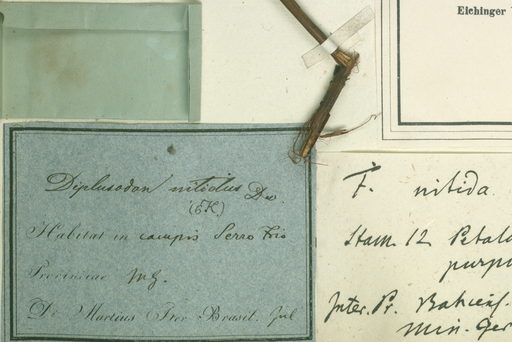 Eichinger
Diplusodon nitidus DC.
Habitat in campis Serro Frio
Provinciae M G.
Dr. Martius Iter Brasil. Jul
F. nitida
Stam. 12 Petala
purpu
Inter. Pr. Bahiens.
Min. Ger